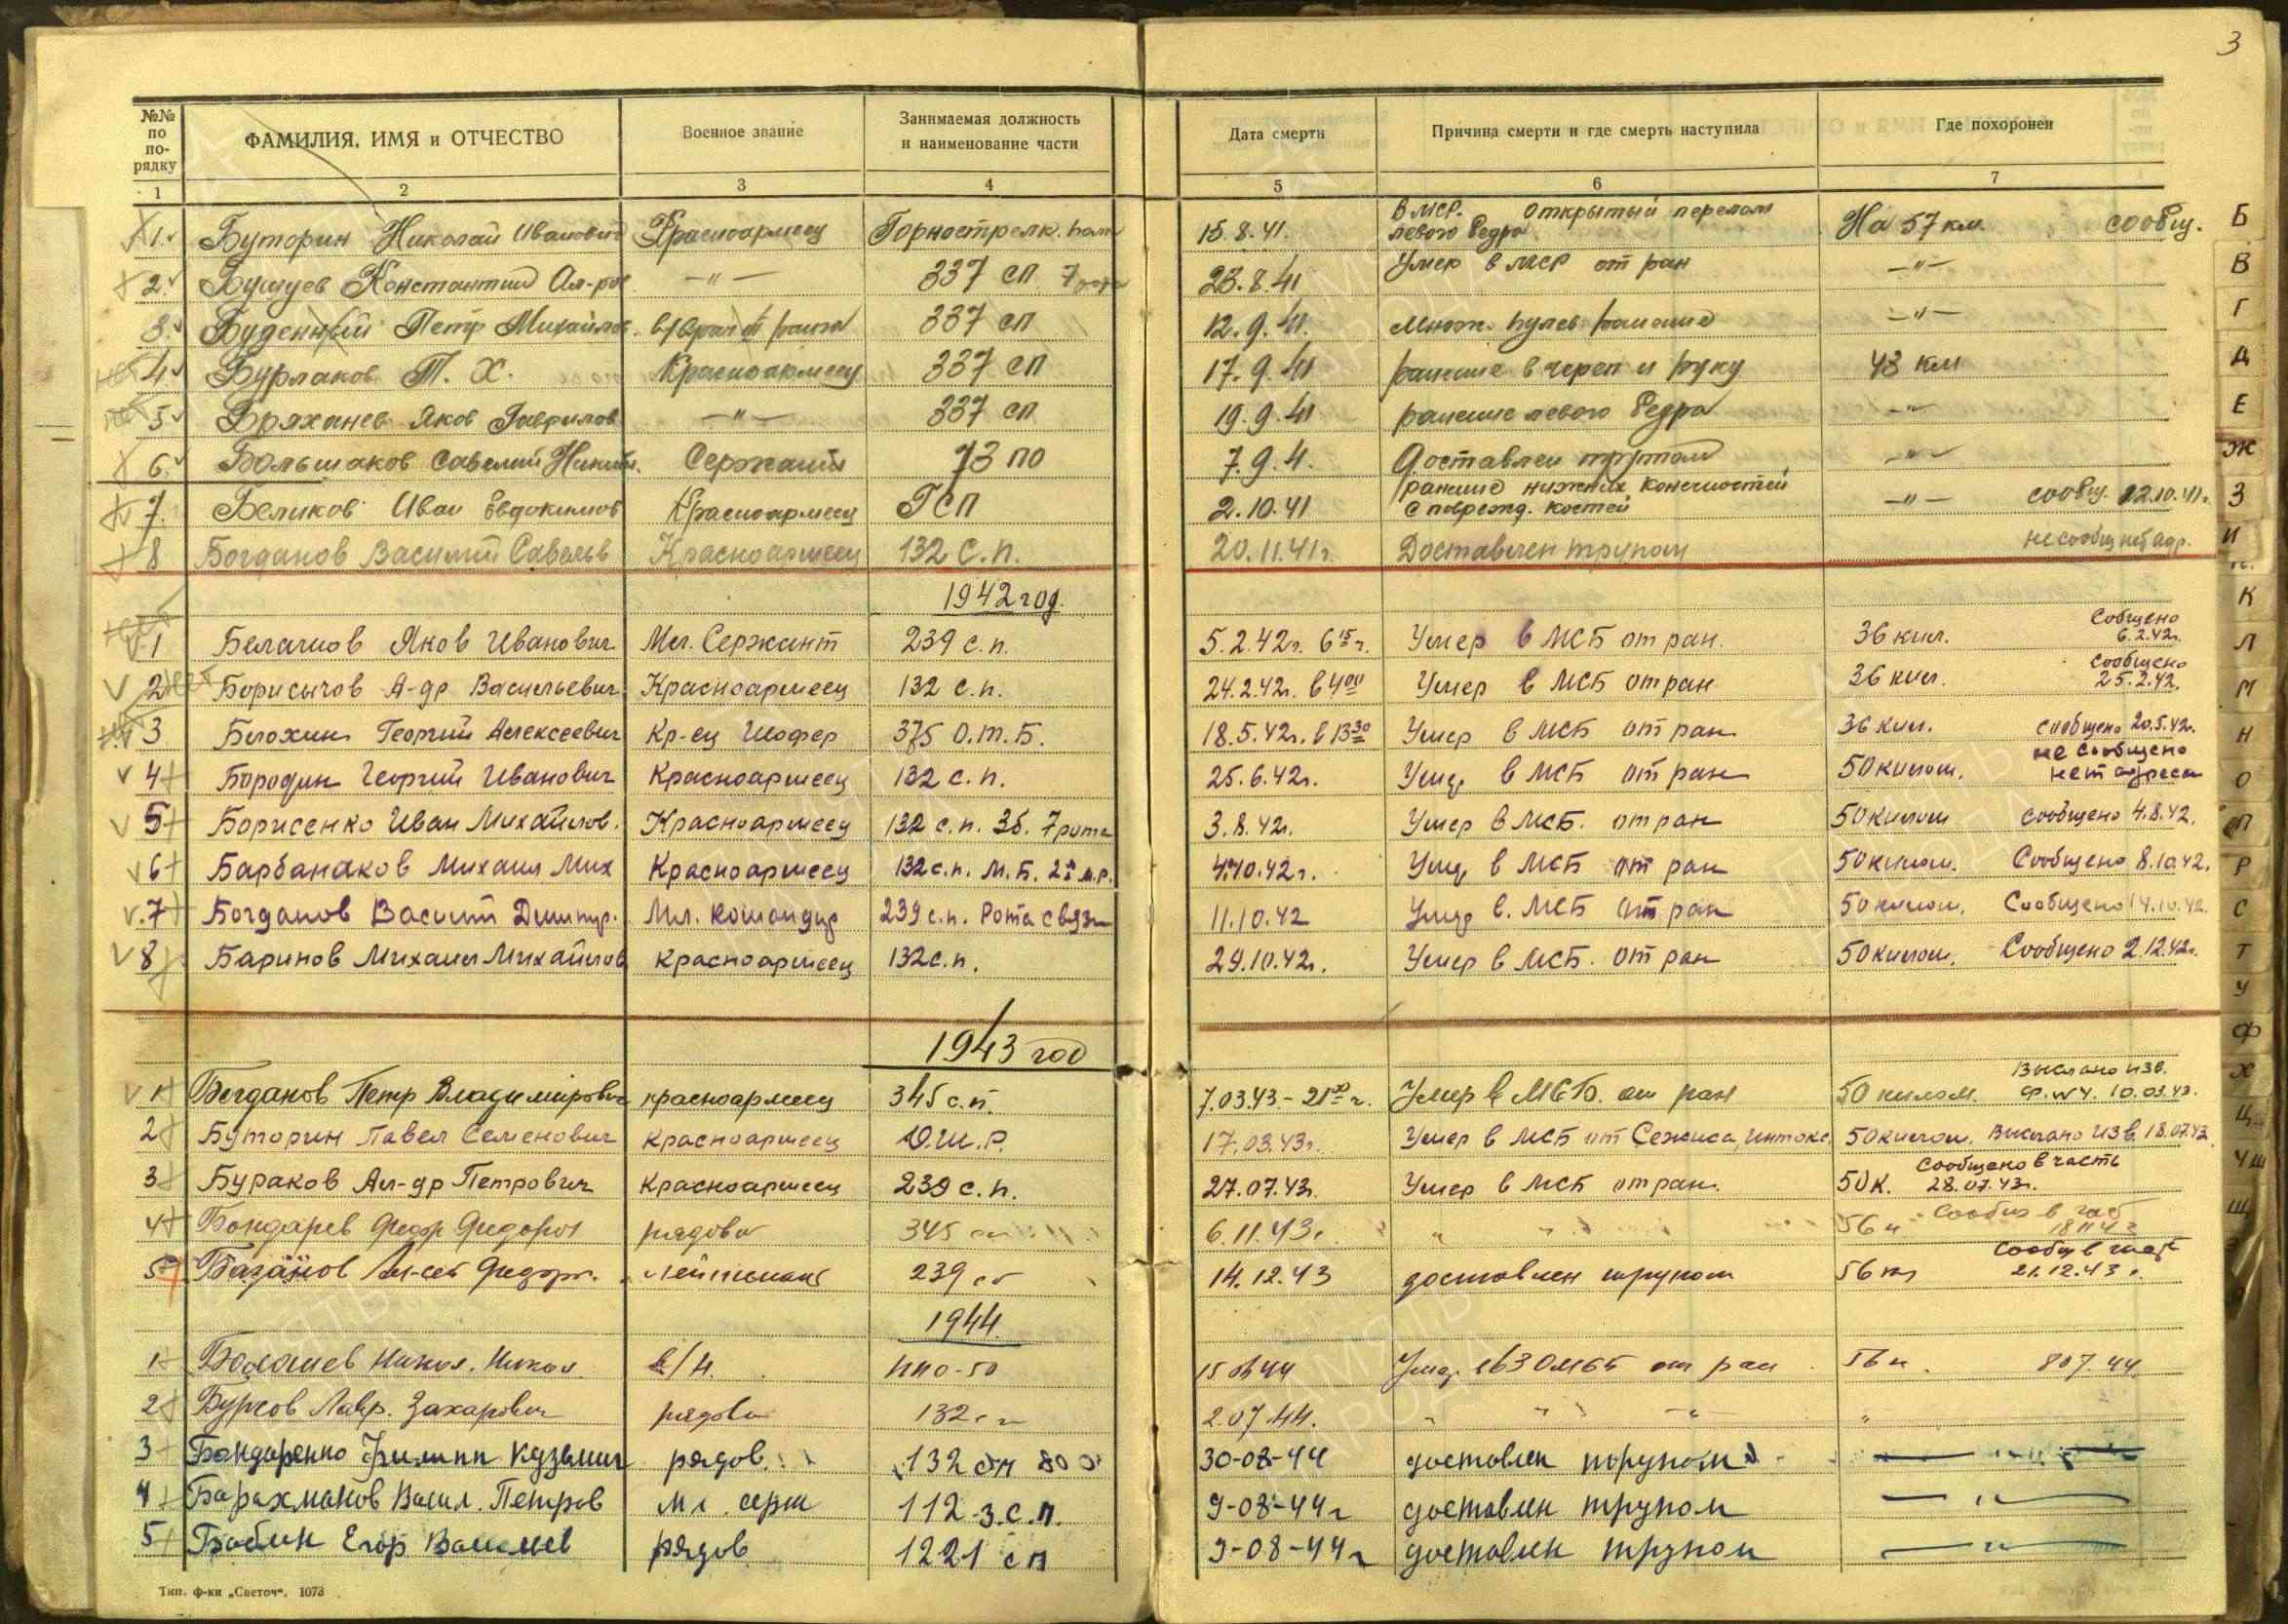 3
№№ по по-рядку
ФАМИЛИЯ, ИМЯ и ОТЧЕСТВО
Военное звание
Занимаемая должность и наименование части
Дата смерти
Причина смерти и где смерть наступила
Где похоронен
1 2 3 4 5 6 7
1. Буторин Николай Иванович Красноармеец Горнострелк. 15.8.41 в МСР. открытый перелом левого бедра На 57 км. сообщ.
2. Бушуев Константин Ал-ров -"- 337 сп 7 рота 23.8.41 Умер в МСР от ран -"-
3. Буденный Петр Михайлов. 337 сп 12.9.41 Множ. пулев. ранение -"-
4 Бурлаков Т. Х. Красноармеец 337 сп 17.9.41 ранение в череп и руку 43 км
5 Бряханев Яков Гаврилов -"- 337 сп 19.9.41 ранение левого бедра -"-
6. Большаков Савелий Никит. Сержант 73 по 7.9.4. Доставлен трупом -"-
7. Беликов Иван Евдокимов Красноармеец ГСП 2.10.41 ранение нижних конечностей с поврежд. костей -"- сообщ. 12.10.41г.
8 Богданов Василий Савельв Красноармеец 132 с.п. 20.11.41г. Доставлен трупом не сообщ нет адр.
1942 год.
1 Белачиов Яков Иванович Мл. Сержант 239 с.п. 5.2.42г. 6 15 ч. Умер в МСБ от ран. 36 кил. Собщено 6.2.42г.
2 Борисычов А-др Васильевич Красноармеец 132 с.п. 24.2.42г. в 4 00 Умер в МСБ от ран 36 кил. сообщено 25.2.42.
3 Блохин Георгий Алексеевич Кр-ец Шофер 375 О.т.Б. 18.5.42г. в 13 30 Умер в МСБ от ран 36 кил. сообщено 20.5.42г.
4 Бородин Георгий Иванович Красноармеец 132 с.п. 25.6.42г. Умер в МСБ от ран 50 килом. не сообщено нет адреса
5 Борисенко Иван Михайлов. Красноармеец 132 с.п. 3б. 7 рота 3.8.42г. Умер в МСБ. от ран 50 килом сообщено 4.8.42.
6 Барбанаков Михаил Мих Красноармеец 132 с.п. М.Б. 2я м.р. 4.10.42г. Умер в МСБ от ран 50 килом. Сообщено 8.10.42.
7 Богданов Василий Дмитр. Мл. командир 239 с.п. Рота связи 11.10.42 Умер в. МСБ от ран 50 килом. Сообщено 14.10.42.
8 Баринов Михаил Михайлов Красноармеец 132 с.п. 29.10.42г. Умер в МСБ. от ран 50 килом. Сообщено 2.12.42г.
1943 год
1 Богданов Петр Владимирович красноармеец 345 с.п. 7.03.43 - 21 00 ч. Умер в МСБ. от ран 50 килом. Выслано изв. ф. №4. 10.03.43.
2 Буторин Павел Семенович Красноармеец О.Ш.Р. 17.03.43г. Умер в МСБ от Сепсиса, Интокс. 50 килом. Выслано изв. 18.07.43.
3 Бураков Ал-др Петрович Красноармеец 239 с.п. 27.07.43г. Умер в МСБ от ран. 50 к. Сообщено в часть 28.07.43г.
4 Бондарев Федор Федоров рядовой 345 сп 6.11.43г. " " " 56 к Сообщ в час
5 Базанов Ал-сей Федор. лейтенант 239 сп 14.12.43 доставлен трупом 56 км Сообщ в часть 21.12.43 г.
1944.
1 Никол. Никол. в/н. ППО-50 15. 44 Умер от ран 807.44.
2 Бурсов Лавр. Захарович рядовой 132 сп 2.07.44. " " " "
3 Бондаренко Филипп Кузьмич рядов. 132 сп 30-08-44 доставлен трупом - " -
4 Барахманов Васил. Петров мл. серж 112 з.с.п. 9-08-44г доставлен трупом - " -
5 Бабин Егор Васильев рядов 1221 сп 9-08-44г доставлен трупом - " -
Б
В
Г
Д
Е
Ж
З
И
К
Л
М
Н
О
П
Р
С
Т
У
Ф
Х
Ц
Ч Ш
Щ
Тип. ф-ки „Светоч“. 1073